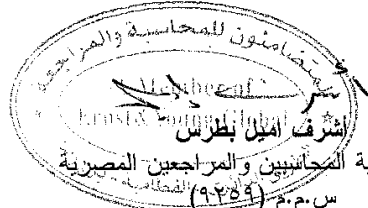 المتضامنون للمحاسبة والمراجعة
Member of
Ernst & Young
اشرف اميل بطرس
ية المحاسبين والمراجعين المصرية
س.م.م (٩٢٥٩)